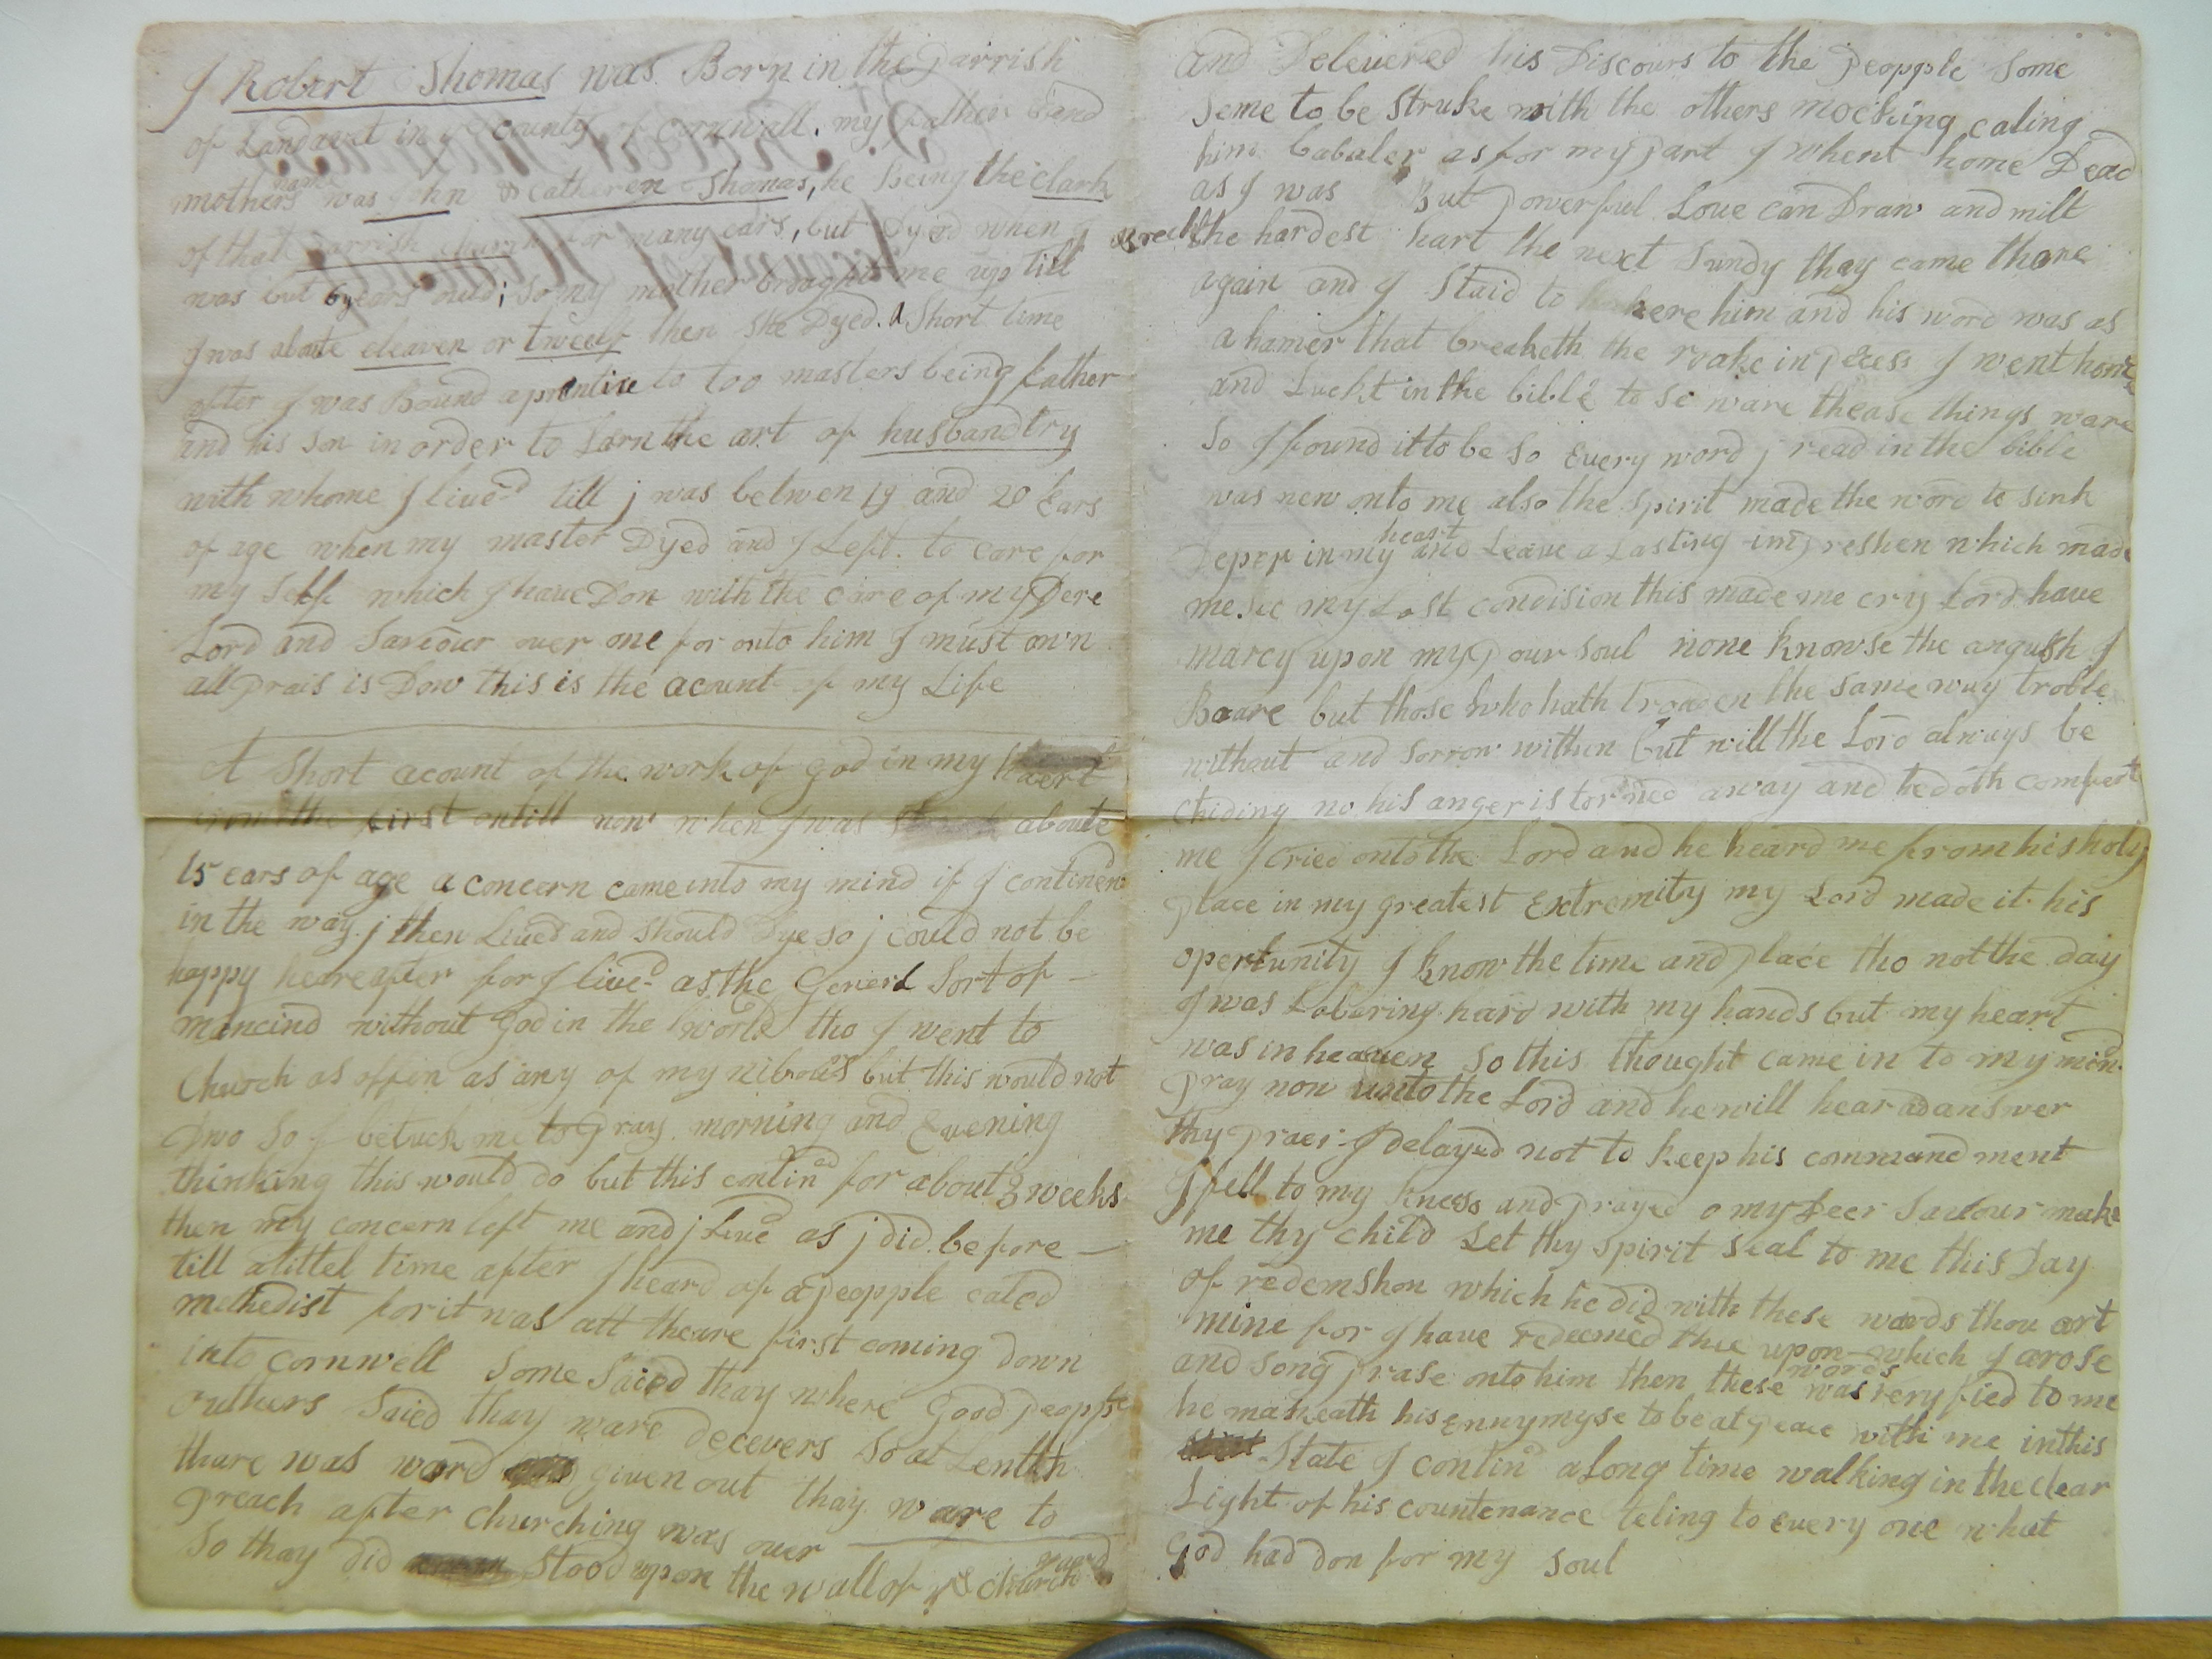 I Robert Thomas was Born in the parrish
of Landavet in ye county of Cornwall. my father and
mothers name was John & Catheren Thomas, he being the clark
of that parrish church for many ears, but Dyed when I
was but 6 years ould; so my mother braught me up till
I was aboute eleaven or twelf then she Dyed. A Short time
after I was Bound aprentice to too masters being father
and his son in order to Larn the art of husbandtry
with whome I lived till j was betwen 19 and 20 Ears
of age when my master Dyed and I Left to care for
my Self which I have Don with the care of my Dere
Lord and Saviour over me for onto him I must own
all prais is Dow this is the acount of my Life
A Short acount of the work of god in my heart
from the first ontill now when I was aboute
15 ears of age a concern came into my mind if I continend
in the way j then Lived and should Dye so j could not be
happy heareafter for I lived as the Generl Sort of
mancind without god in the world tho I went to
Church as offen as any of my nibours but this would not
Dwo So I betuck me to pray morning and Evening
thinking this would do but this contined for about 3 weeks
then my concern left me and j Lived as j did before
till alittel time after I heard of a peopple caled
methedist for it was att theare first coming down
into cornwell Some Saied thay where Good peopple
outhers Saied thay ware decevers So at Lentth
thare was word given out thay ware to
preach after Churching was over
So thay did Stood upon the wall of ye Church yard
and Delevered his Discours to the peopple Some
Seme to be Struke with the others mocking caling
him babaler as for my part I whent home Dead
as I was But powerful Love can Draw and milt
the hardest hart the next Sundy thay came thare
again and I Staid to here him and his word was as
a hamer that breaketh the roake in peces I went home
and Luckt in the bible to Se ware thease things ware
So I found it to be So Every word j read in the bible
was new onto me also the spirit made the word to sink
Deper in my heart and Leave a Lasting impreshen which made
me see my Lost condision this made me cry Lord have
marcy upon my pour soul none knowse the angush I
Baare but those who hath troden the same way troble
without and sorrow withen but will the Lord always be
Chiding no his anger is torned away and he doth comfort
me I cried onto the Lord and he heard me from his holy
place in my greatest Extremity my Lord made it his
opertunity I know the time and place tho not the day
I was Labering hard with my hands but my heart
was in heaven So this thought came in to my mind
pray now unto the Lord and he will hear ad answer
thy praer I delayed not to keep his command ment
I fell to my knees and prayed o my Deer Saviour make
me thy child Let thy Spirit Seal to me this Day
of redemshon which he did with these words thou art
mine for I have redeemed thee upon which I arose
and song prase onto him then these words was veryfied to me
he maketh his Ennymyse to be at peace with me in this
State I contind a Long time walking in the clear
Light of his countenance teling to every one what
god had don for my soul